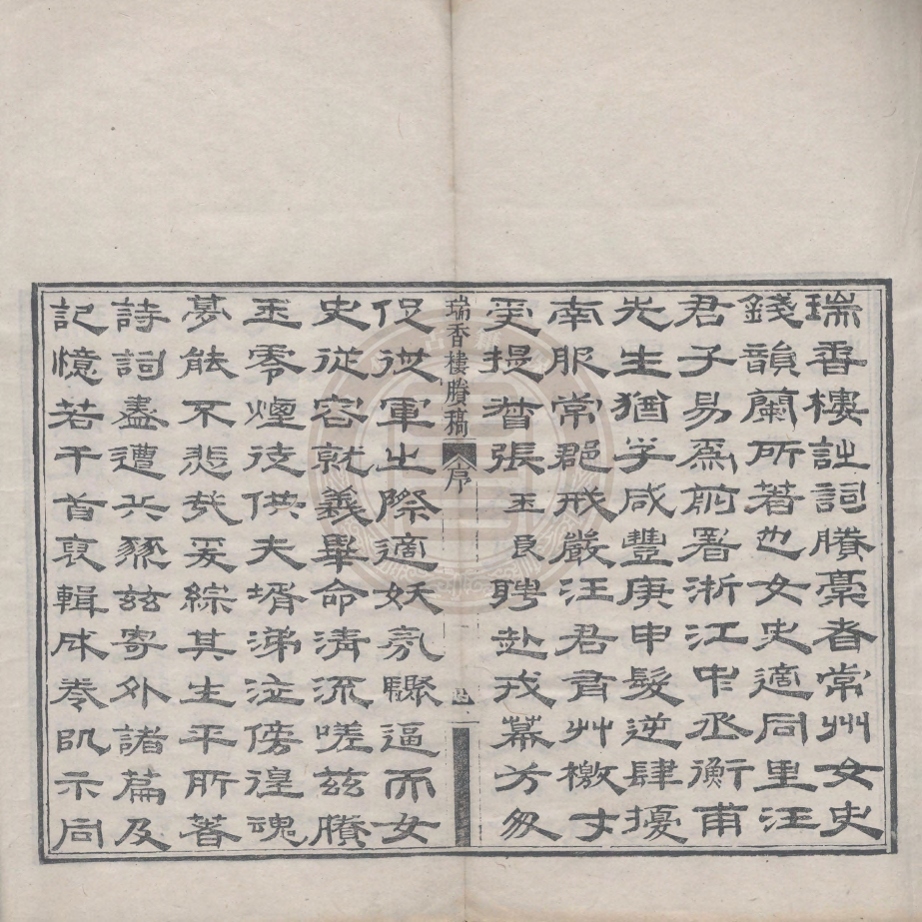 瑞香樓詩詞賸稾者常州女史
錢韻蘭所著也女史適同里汪
君子易爲前署浙江中丞衡甫
先生猶子咸豐庚申髮逆肆擾
南服常郡戒嚴汪君負艸檄才
受提督張玉良聘赴戎幕方匆
瑞香樓賸稿 序 四
促從軍之際適妖氛驟逼而女
史從容就義畢命清流嗟茲賸
玉零煙徒供夫壻涕泣傍徨魂
夢能不悲哉爰綜其生平所著
詩詞盡遭兵燹茲寄外諸篇及
記憶若干首裒輯成卷即示同